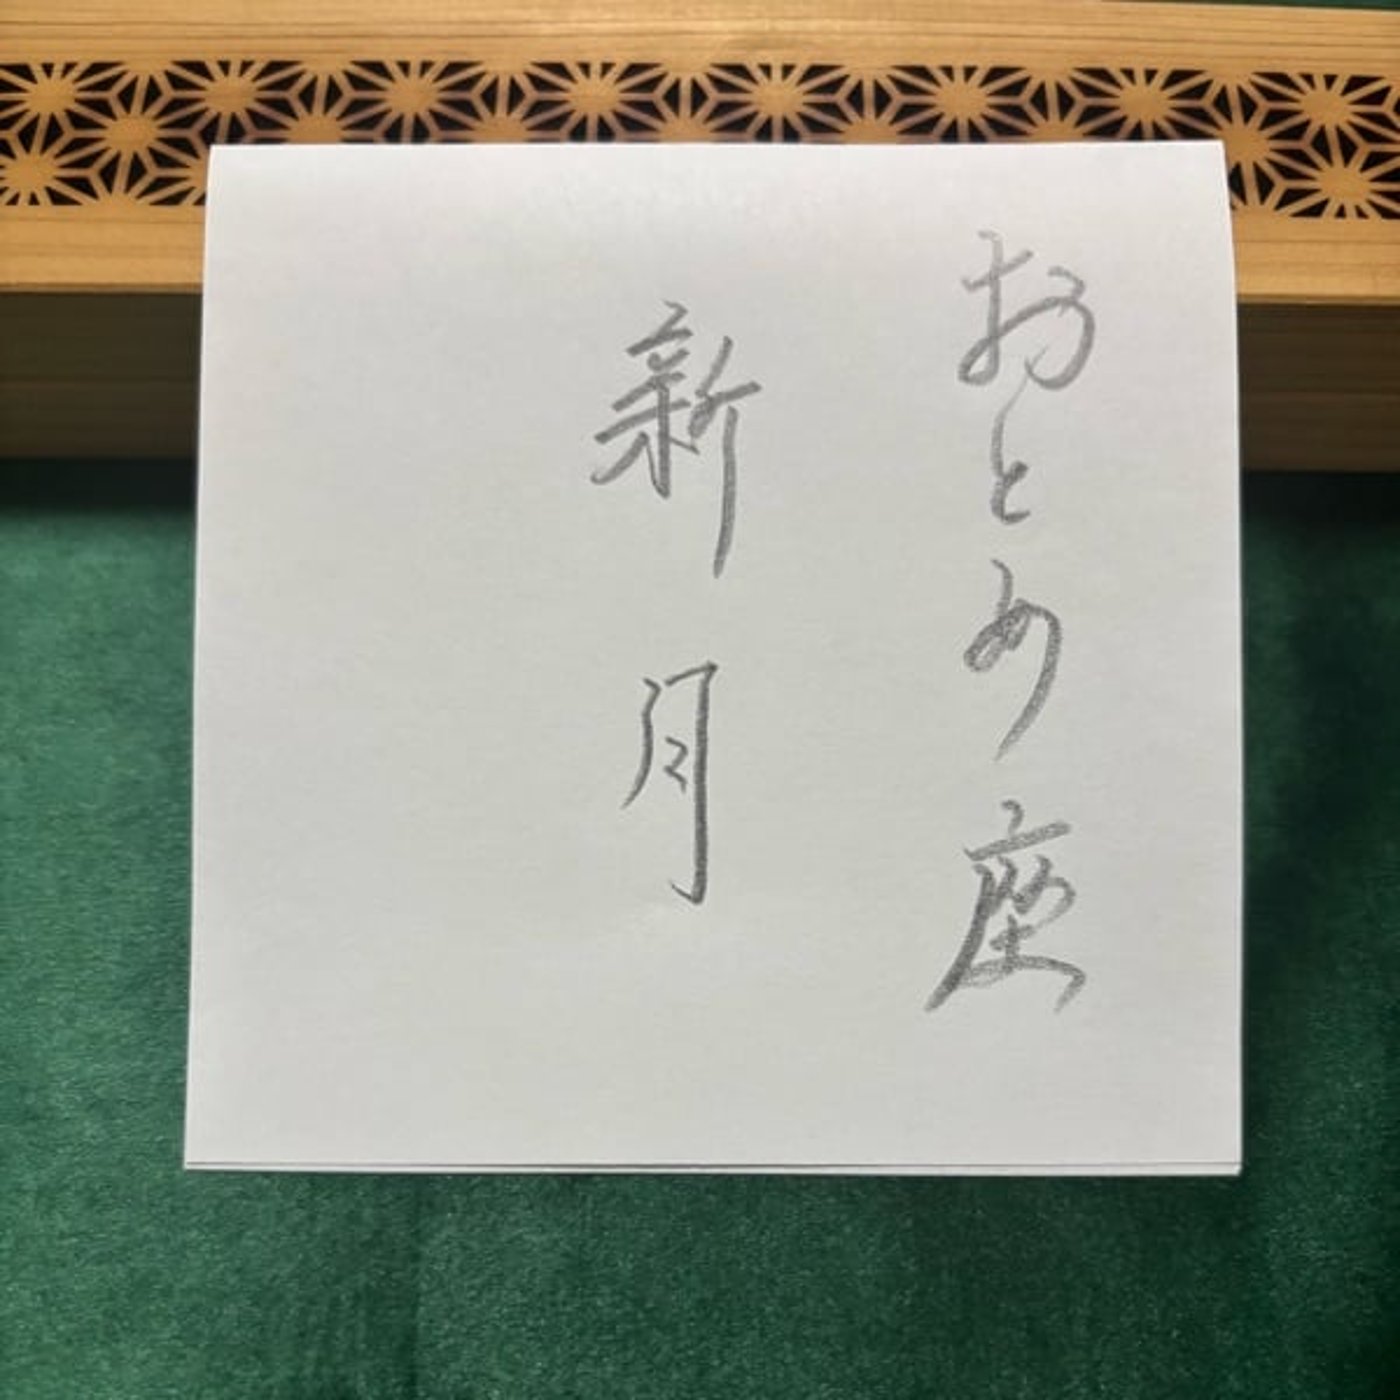 おとめ座
新月